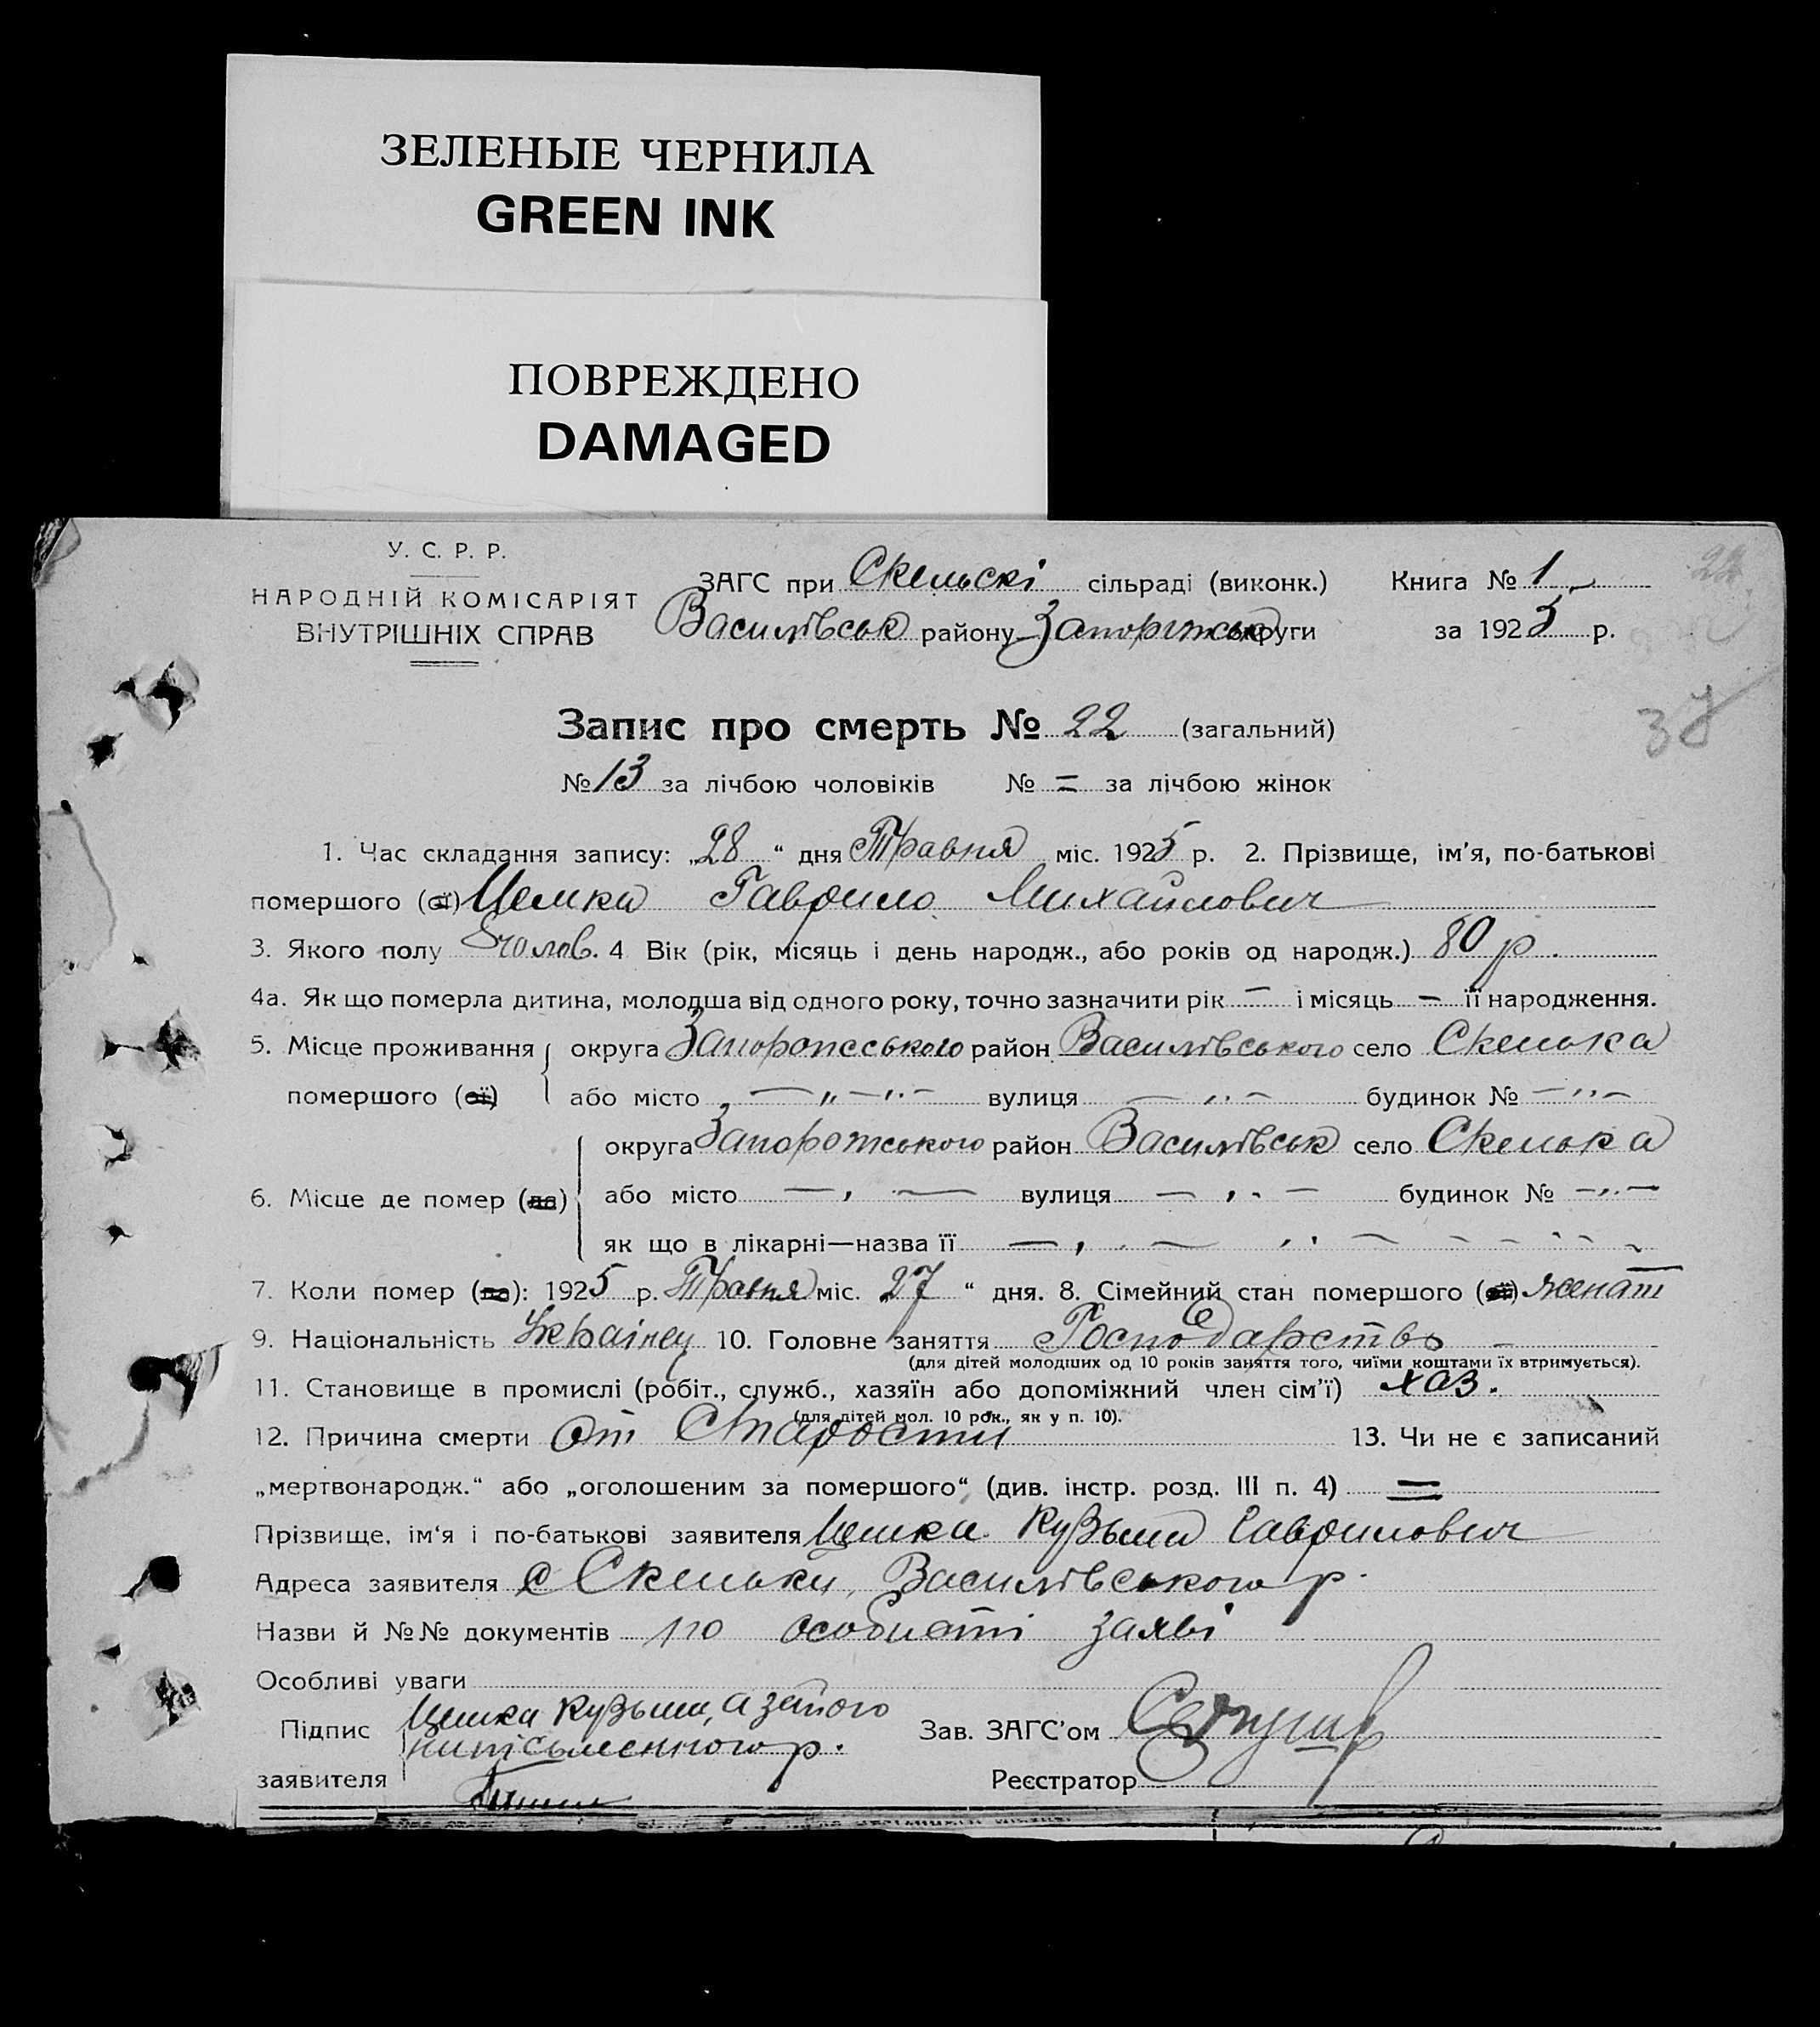 ЗЕЛЕНЫЕ ЧЕРНИЛА
GREEN INK
ПОВРЕЖДЕНО
DAMAGED
У. С. Р. Р.
НАРОДНІЙ КОМІСАРІЯТ
ВНУТРІШНІХ СПРАВ
ЗАГС при Скельскі сільраді (виконк.) Книга № 1
Василівськ району Запоріжськ округи за 1925 р.
37
Запис про смерть № 22 (загальний)
№ 13 за лічбою чоловіків № = за лічбою жінок
1. Час складання запису: „28“ дня Травня міс. 1925 р. 2. Прізвище, ім'я, по-батькові
помершого (ої) Цемка Гаврило Михайлович
3. Якого полу чолов. 4 Вік (рік, місяць і день народж., або років од народж.) 80 р.
4а. Як що померла дитина, молодша від одного року, точно зазначити рік — і місяць — її народження.
5. Місце проживання округа Запорожського район Василівського село Скелька
помершого (ої) або місто — „ — „ — вулиця — „ — будинок № — „ —
округа Запорожського район Василівськ село Скелька
6. Місце де помер (ла) або місто — „ — вулиця — „ — будинок № — „ —
як що в лікарні—назва її — „ —
7. Коли помер (ла): 1925 р. Травня міс. 27 “ дня. 8. Сімейний стан помершого (ої) женат
9. Національність Українец 10. Головне заняття Господарство
(для дітей молодших од 10 років заняття того, чиїми коштами їх втримується).
11. Становище в промислі (робіт., служб., хазяїн або допоміжний член сім'ї) хаз.
(для дітей мол. 10 рок., як у п. 10).
12. Причина смерти От Старости 13. Чи не є записаний
„мертвонародж.“ або „оголошеним за помершого“ (див. інстр. розд. III п. 4) =
Прізвище, ім'я і по-батькові заявителя Цемка Кузьма Гаврилович
Адреса заявителя с Скельки, Василівського р.
Назви й №№ документів по особисті заяві
Особливі уваги
Підпис Цемка Кузьма, а за його
неписьменного р. Зав. ЗАГС'ом
заявителя Реєстратор